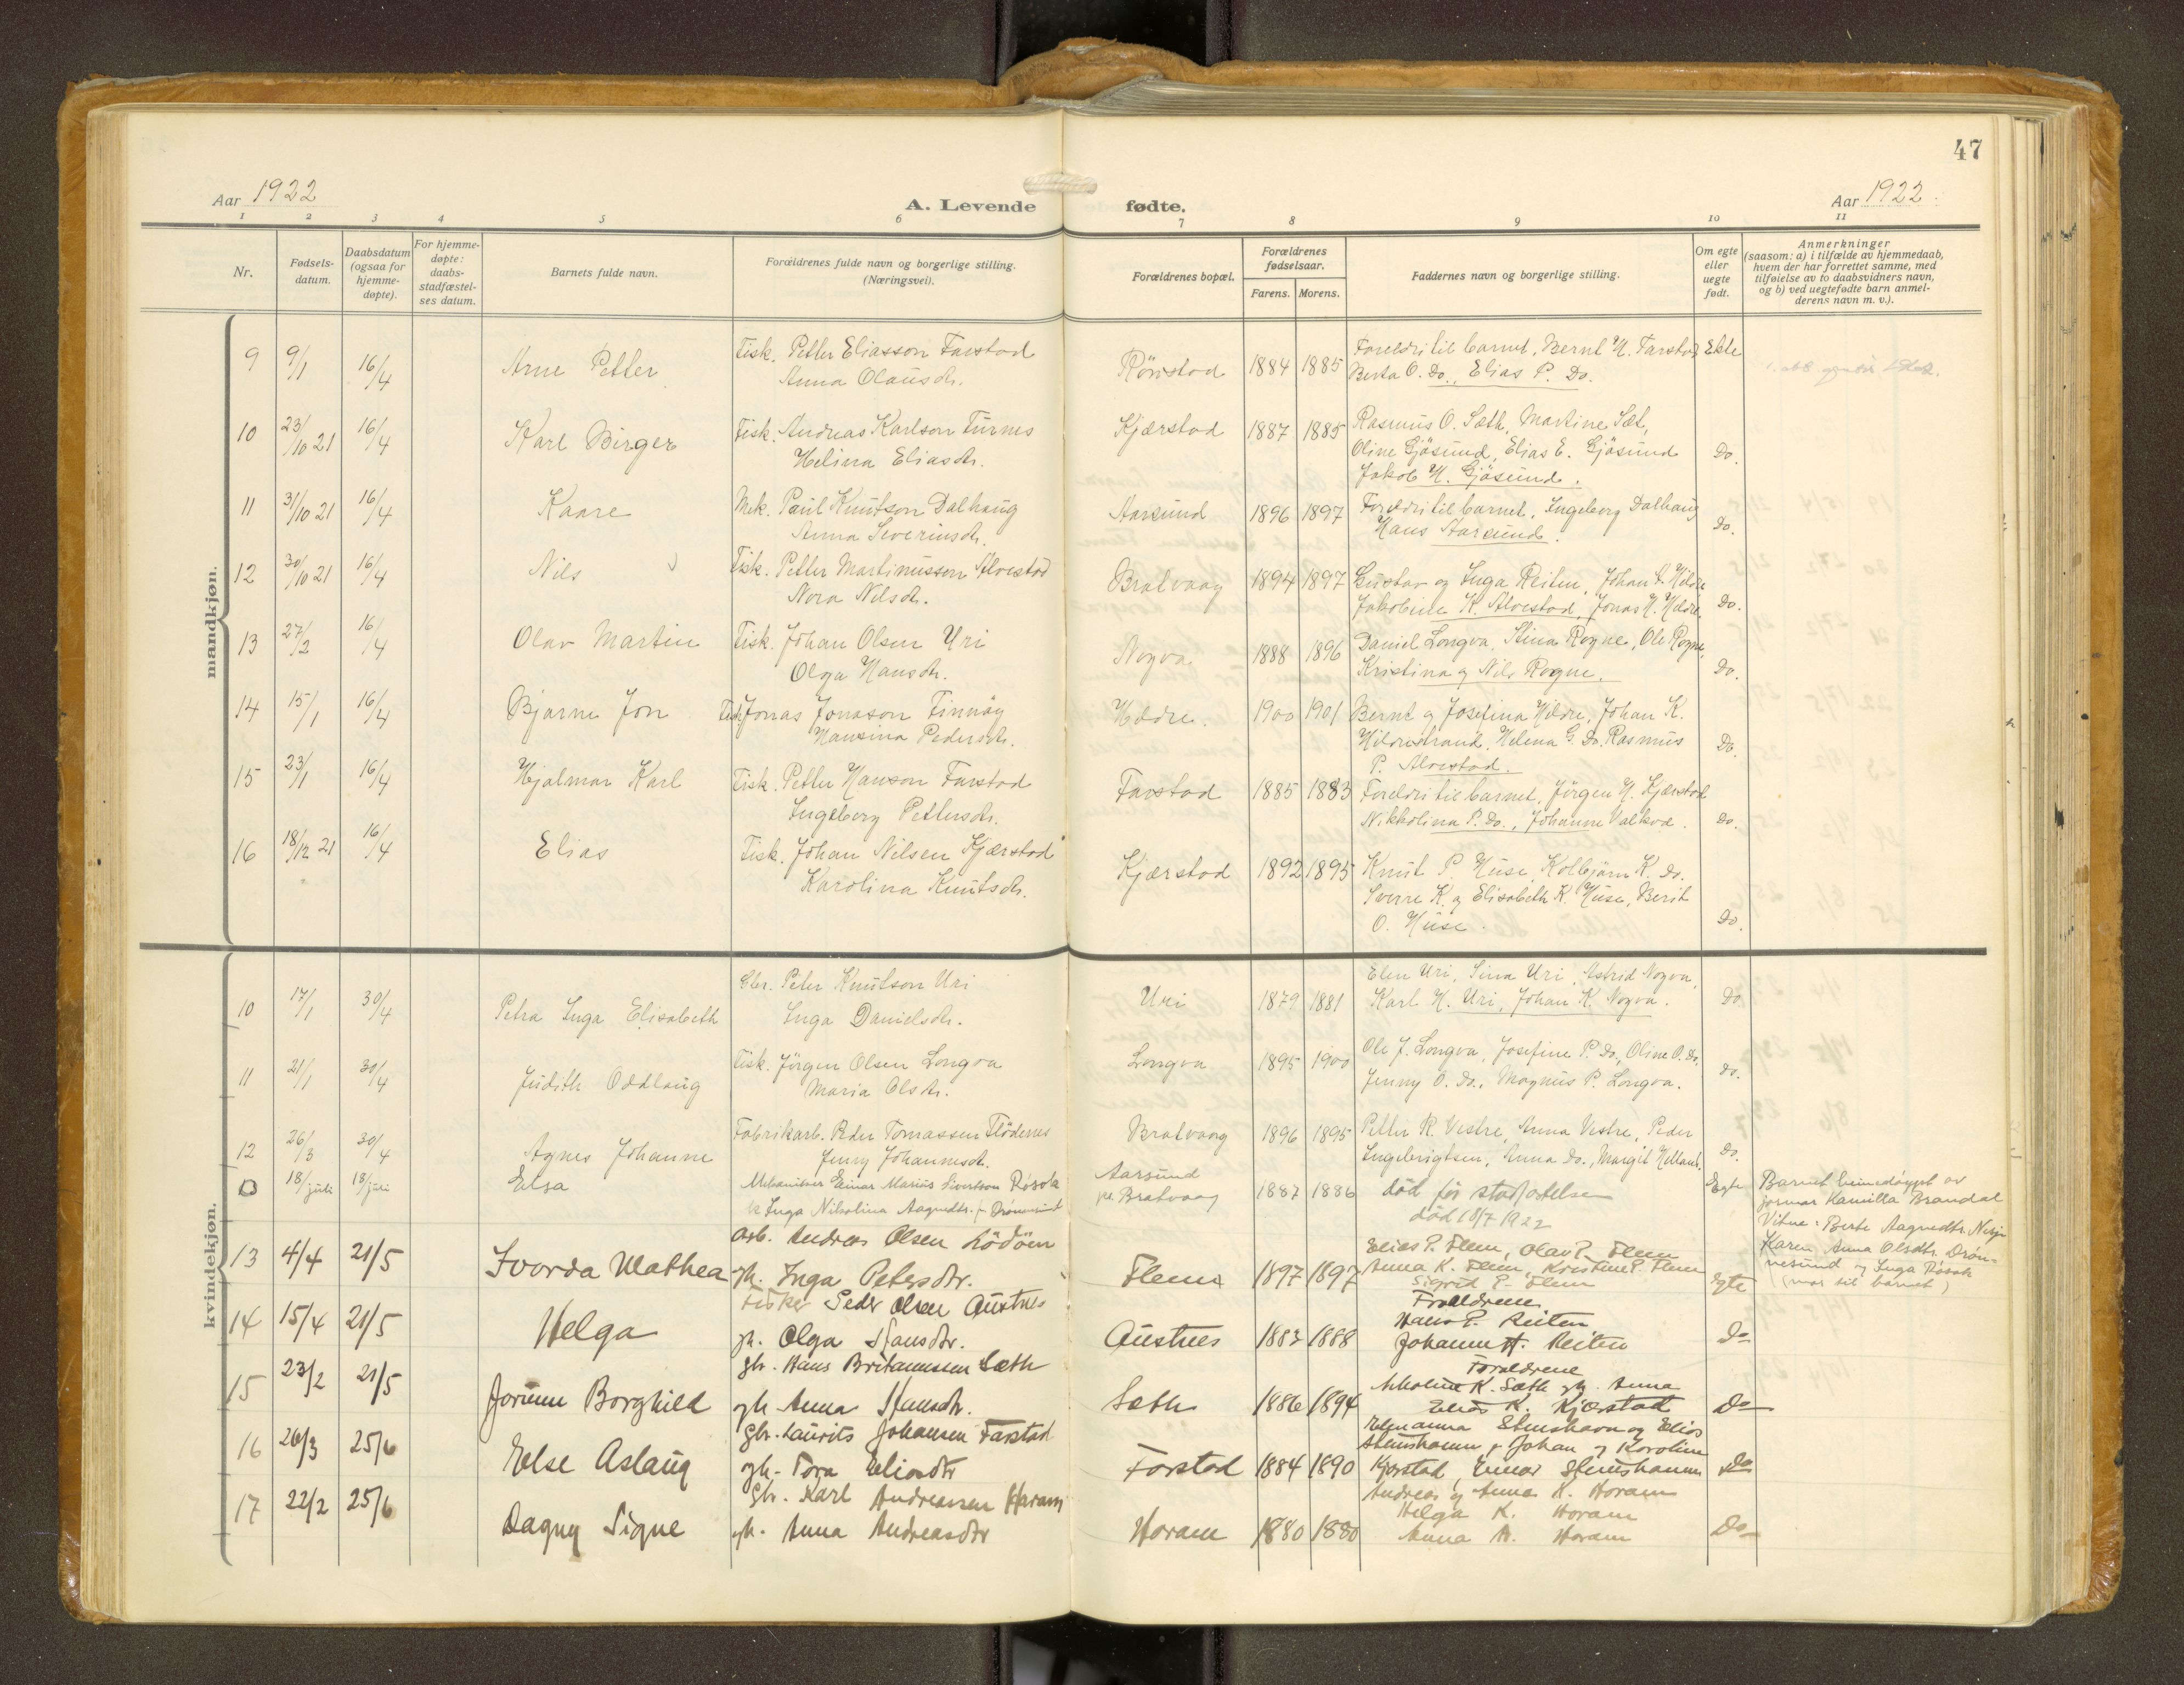 47
Aar 1922
A. Levende fødte.
Aar 1922.
1 2 3 4 5 6 7 8 9 10 11
Nr.
Fødsels-
datum.
Daabsdatum
(ogsaa for
hjemme-
døpte).
For hjemme-
døpte:
daabs-
stadfæstel-
ses datum.
Barnets fulde navn.
Forældrenes fulde navn og borgerlige stilling.
(Næringsvei).
Forældrenes bopæl.
Forældrenes
fødselsaar.
Farens. Morens.
Faddernes navn og borgerlige stilling.
Om egte
eller
uegte
født.
Anmerkninger
(saasom: a) i tilfælde av hjemmedaab,
hvem der har forrettet samme, med
tilføielse av to daabsvidners navn,
og b) ved uegtefødte barn anmel-
derens navn m. v.).
mandkjøn.
9 9/1 16/4 Arne Petter Fisk. Petter Eliasson Farstad
Anna Olausdtr.
Rörstad 1884 1885 Foreldri til barnet, Bernt N. Farstad Ekte
Berta O. Do., Elias P. Do.
10 23/10 21 16/4 Karl Birger Fisk. Andreas Karlson Turnes
Helina Eliasdtr.
Kjærstad 1887 1885 Rasmus O. Sæth, Martine Sæt,
Oline Gjösund, Elias E. Gjösund Do.
Jakob N. Gjösund.
11 31/10 21 16/4 Kaare Mek. Paul Knutson Dalhaug
Anna Severinsdtr.
Aarsund 1896 1897 Foreldri til barnet, Ingeborg Dalhaug
Hans Aarsund. Do.
12 30/10 21 16/4 Nils Fisk. Petter Martinusson Alvestad
Nora Nilsdtr.
Bratvaag 1894 1897 Gustav og Inga Reiten, Johan Hildre
Jakobine K. Alvestad, Jonas H. Hildre. Do.
13 27/2 16/4 Olav Martin Fisk. Johan Olsen Uri
Olga Hansdtr.
Nogva 1888 1896 Daniel Longva, Stina Rogne, Ole Rogne,
Kristina og Nils Rogne. Do.
14 15/1 16/4 Bjarne Jon Fisk. Jonas Jonason Finnöy
Hansina Pedersdtr.
Hildre. 1900 1901 Bernt og Josefina Hildre, Johan K.
Hildrestrand, Helena G. Do. Rasmus Do.
P. Alvestad.
15 23/1 16/4 Hjalmar Karl Fisk. Petter Hanson Farstad
Ingeborg Pettersdtr.
Farstad 1885 1883 Foreldri til barnet, Jörgen N. Kjærstad
Nikkolina P. Do., Johanne Valkvæ. Do.
16 18/12 21 16/4 Elias Fisk. Johan Nilsen Kjærstad
Karolina Knutsdtr.
Kjærstad 1892 1895 Knut P. Huse, Kolbjörn K. Do.
Sverre K. og Elisabeth K. Huse, Berit
O. Huse. Do.
kvindekjøn.
10 17/1 30/4 Petra Inga Elisabeth Gbr. Peter Knutson Uri
Inga Danielsdtr.
Uri 1879 1881 Elen Uri, Sina Uri, Astrid Nogva,
Karl H. Uri, Johan K. Nogva. Do.
11 21/1 30/4 Judith Oddlaug Fisk. Jörgen Olsen Longva
Maria Olsdtr.
Longva 1895 1900 Ole J. Longva, Josefine P. Do., Oline O. Do.
Jenny O. Do., Magnus P. Longva. Do.
12 26/3 30/4 Agnes Johanne Fabrikarb. Peder Tomassen Flödernes
Jenny Johannesdtr.
Bratvaag 1896 1895 Petter R. Vestre, Anna Vestre, Peder
Ingebrigtsen, Anna Do., Margit Helland. Do.
0 18/juli 18/juli Elsa Mekaniker Einar Marius Sivertsen Røsok
Inga Nikolina Aagedtr. f. Drönnesund
Aarsund
pr. Bratvaag 1887 1886 död för stadfæstelsen
död 18/7 1922 Egte
Barnet heimedöypt av
jormor Kamilla Brandal
Vitne: Berte Aagedtr. Nesje
Karen Anna Olsdtr. Drön-
nesund og Inga Røsok
(mor til barnet)
13 4/4 21/5 Svorda Mathea Arb. Andreas Olsen Lödöen
gh. Inga Petersdtr.
Flem 1897 1897 Elias P. Flem, Olav P. Flem
Anna K. Flem, Kristine P. Flem
Sigrid P. Flem Egte
14 15/4 21/5 Helga Fisker Peder Olsen Austnes
gh. Olga Hansdtr.
Austnes 1887 1888 Foreldrene
Hans P. Reiten
Johanne H. Reiten Do
15 23/2 21/5 Jorunn Borghild gbr. Hans Britanussen Sæth
gh. Anna Hansdtr.
Sæth 1886 1894 Foreldrene
Nikoline K. Sæth gh. Anna
Elias K. Kjærstad Do
16 26/3 25/6 Else Aslaug Gbr. Laurits Johansen Farstad
gh. Tora Eliasdtr
Farstad 1884 1890 Elenanna Stenshavn og Elias
Stenshavn, Johan og Karoline
Kjærstad, Einar Stenshavn Do
17 22/2 25/6 Dagny Signe Gbr. Karl Andreassen Haram
gh. Anna Andreasdtr
Haram 1880 1880 Andreas og Anna K. Haram
Helga K. Haram
Anna A. Haram Do